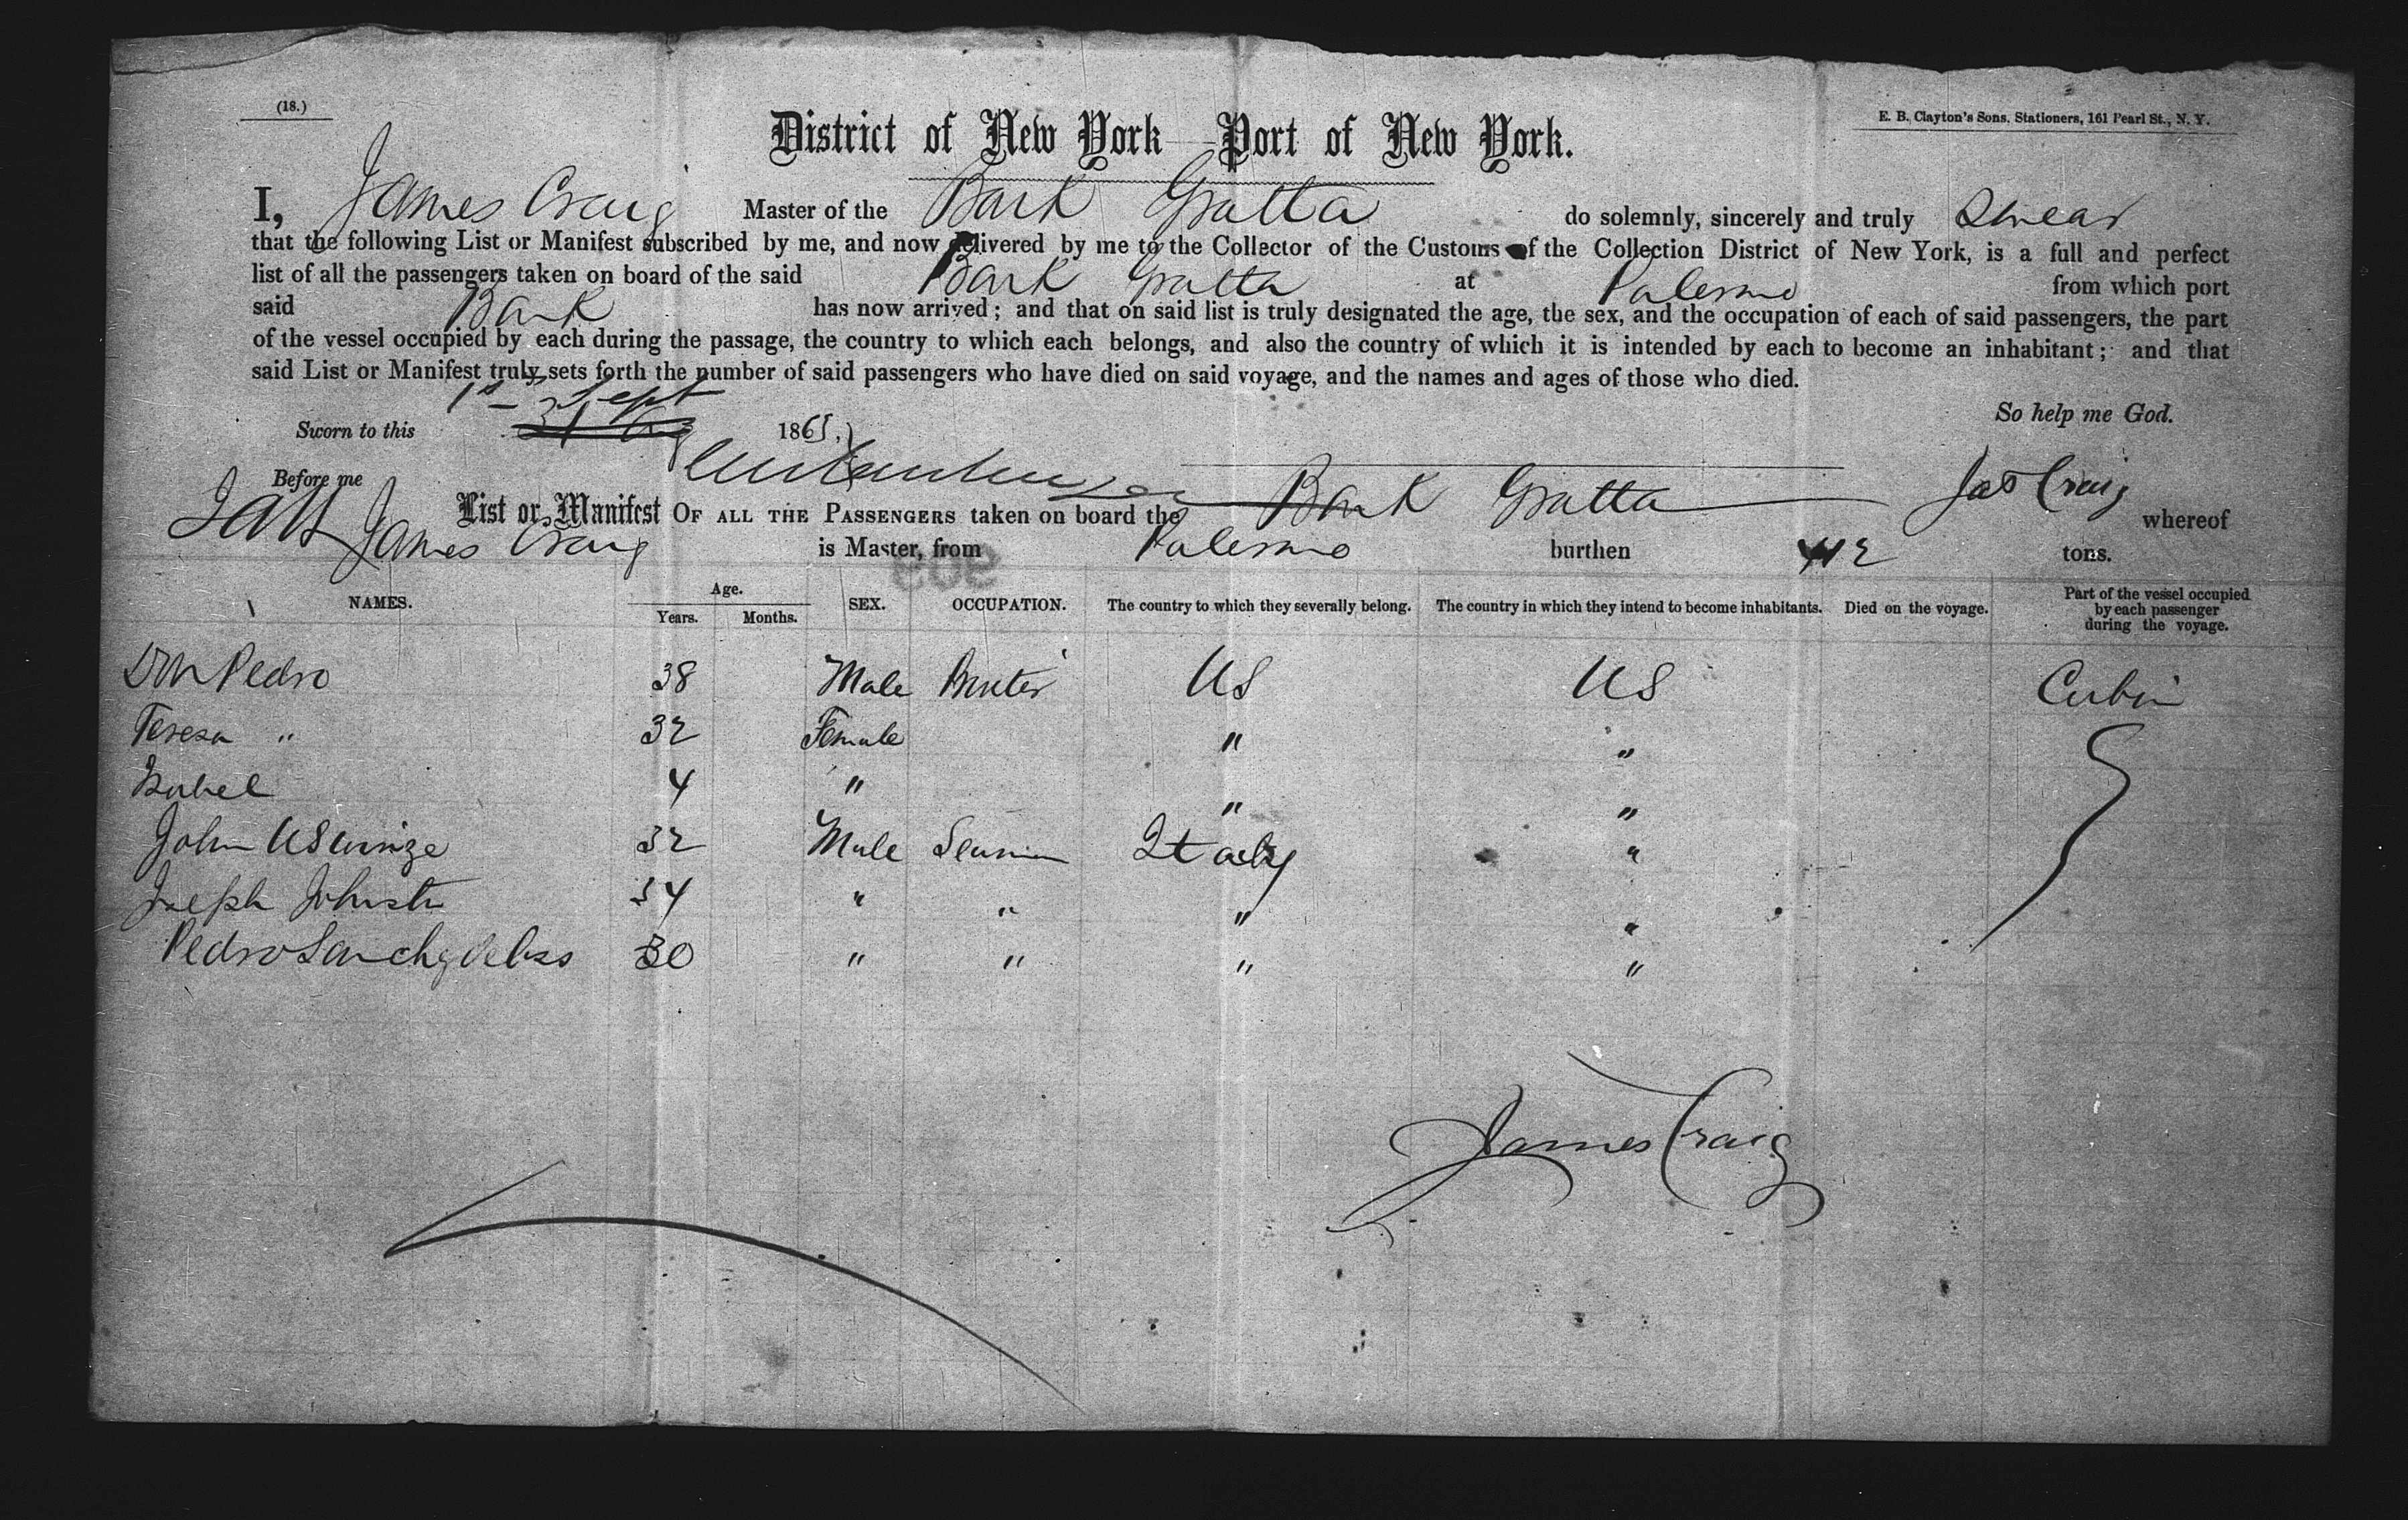 (18.)
E. B. Clayton's Sons, Stationers, 161 Pearl St., N. Y.
District of New York—Port of New York.
I, James Craig Master of the Bark Gratta do solemnly, sincerely and truly Swear
that the following List or Manifest subscribed by me, and now delivered by me to the Collector of the Customs of the Collection District of New York, is a full and perfect
list of all the passengers taken on board of the said Bark Gratta at Palermo from which port
said Bark has now arrived; and that on said list is truly designated the age, the sex, and the occupation of each of said passengers, the part
of the vessel occupied by each during the passage, the country to which each belongs, and also the country of which it is intended by each to become an inhabitant; and that
said List or Manifest truly sets forth the number of said passengers who have died on said voyage, and the names and ages of those who died.
So help me God.
1st Sept
Sworn to this 31 Aug 1865.
Before me
Jas Craig
List or Manifest OF ALL THE PASSENGERS taken on board the Bark Gratta whereof
James Craig is Master, from Palermo burthen 412 tons.
NAMES. Age. Years. Months. SEX. OCCUPATION. The country to which they severally belong. The country in which they intend to become inhabitants. Died on the voyage. Part of the vessel occupied by each passenger during the voyage.
Don Pedro 38 Male US US Cabin
Teresa " 32 Female " "
Isabel 4 " " "
John 32 Male Seaman Italy "
Joseph Johnston 34 " " " "
Pedro 30 " " " "
James Craig